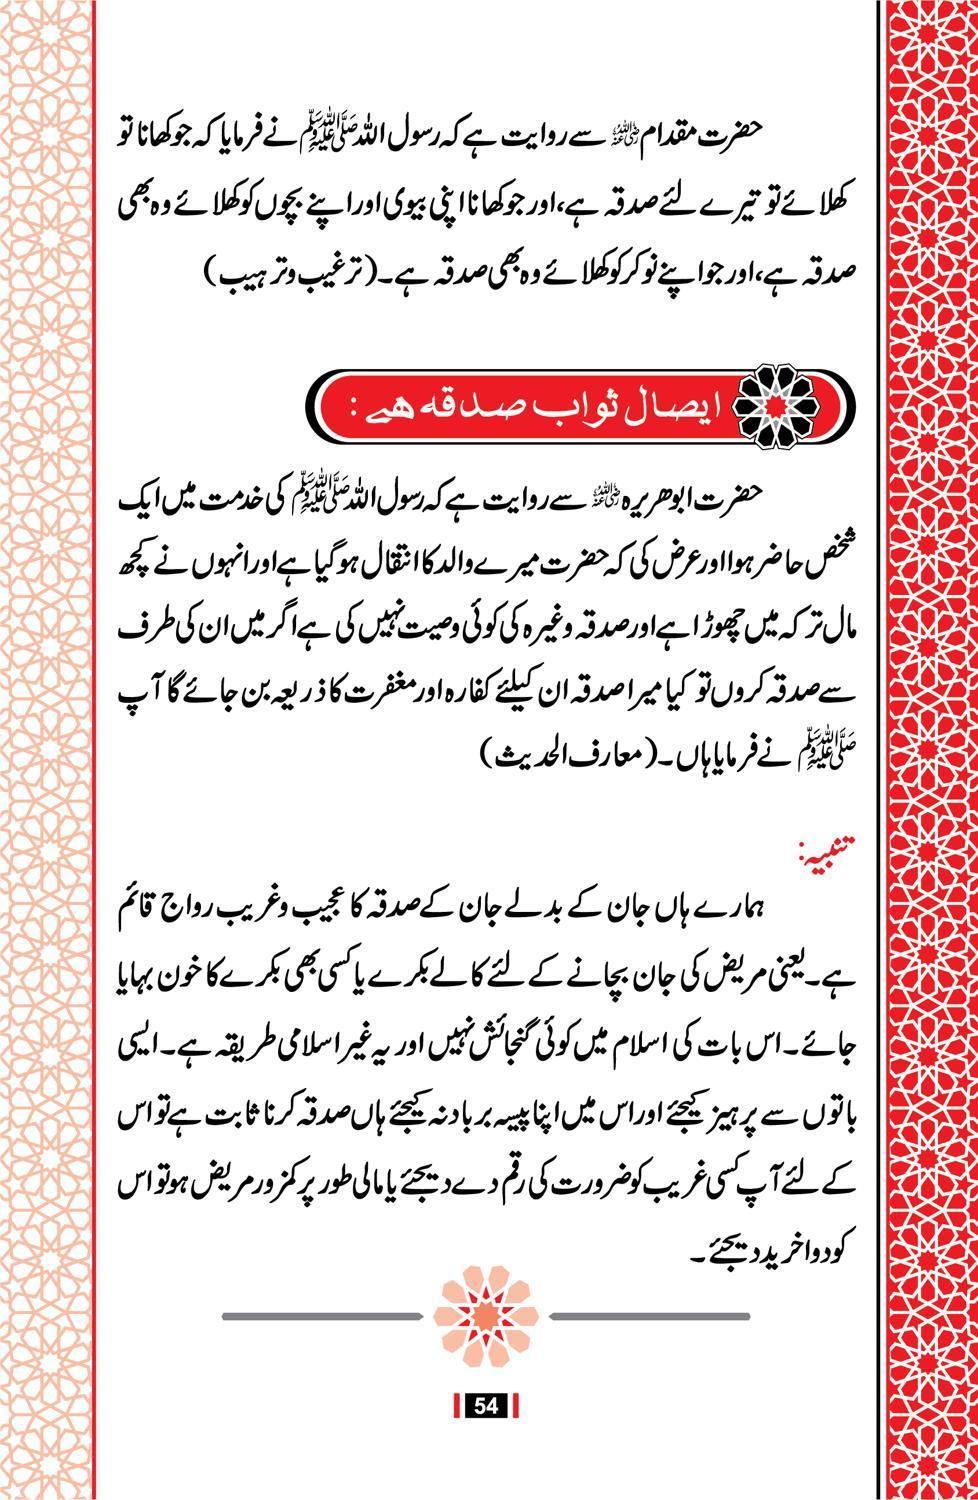 حضرت مقدام رضی اللہ عنہ سے روایت ہے کہ رسول اللہ ﷺ نے فرمایا کہ جو کھانا تو
کھلائے تو تیرے لئے صدقہ ہے، اور جو کھانا اپنی بیوی اور اپنے بچوں کو کھلائے وہ بھی
صدقہ ہے، اور جو اپنے نوکر کو کھلائے وہ بھی صدقہ ہے۔ (ترغیب وترہیب)
ایصال ثواب صدقہ ھے:
حضرت ابوھریرہ رضی اللہ عنہ سے روایت ہے کہ رسول اللہ ﷺ کی خدمت میں ایک
شخص حاضر ہوا اور عرض کی کہ حضرت میرے والد کا انتقال ہو گیا ہے اور انہوں نے کچھ
مال ترکہ میں چھوڑا ہے اور صدقہ وغیرہ کی کوئی وصیت نہیں کی ہے اگر میں ان کی طرف
سے صدقہ کروں تو کیا میرا صدقہ ان کیلئے کفارہ اور مغفرت کا ذریعہ بن جائے گا آپ
ﷺ نے فرمایا ہاں۔ (معارف الحدیث)
تنبیہ:
ہمارے ہاں جان کے بدلے جان کے صدقہ کا عجیب وغریب رواج قائم
ہے۔ یعنی مریض کی جان بچانے کے لئے کالے بکرے یا کسی بھی بکرے کا خون بہایا
جائے۔ اس بات کی اسلام میں کوئی گنجائش نہیں اور یہ غیر اسلامی طریقہ ہے۔ ایسی
باتوں سے پرہیز کیجئے اور اس میں اپنا پیسہ برباد نہ کیجئے ہاں صدقہ کرنا ثابت ہے تو اس
کے لئے آپ کسی غریب کو ضرورت کی رقم دے دیجئے یا مالی طور پر کمزور مریض ہو تو اس
کو دوا خرید دیجئے۔
54